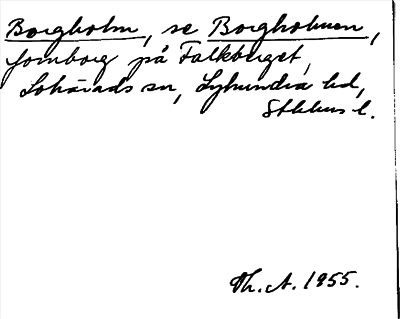 Borgholm, se Borgholmen,
fornborg på Falkberget,
Lohärads sn, Lyhundra hd,
Sthlms l.
Th. A. 1955.